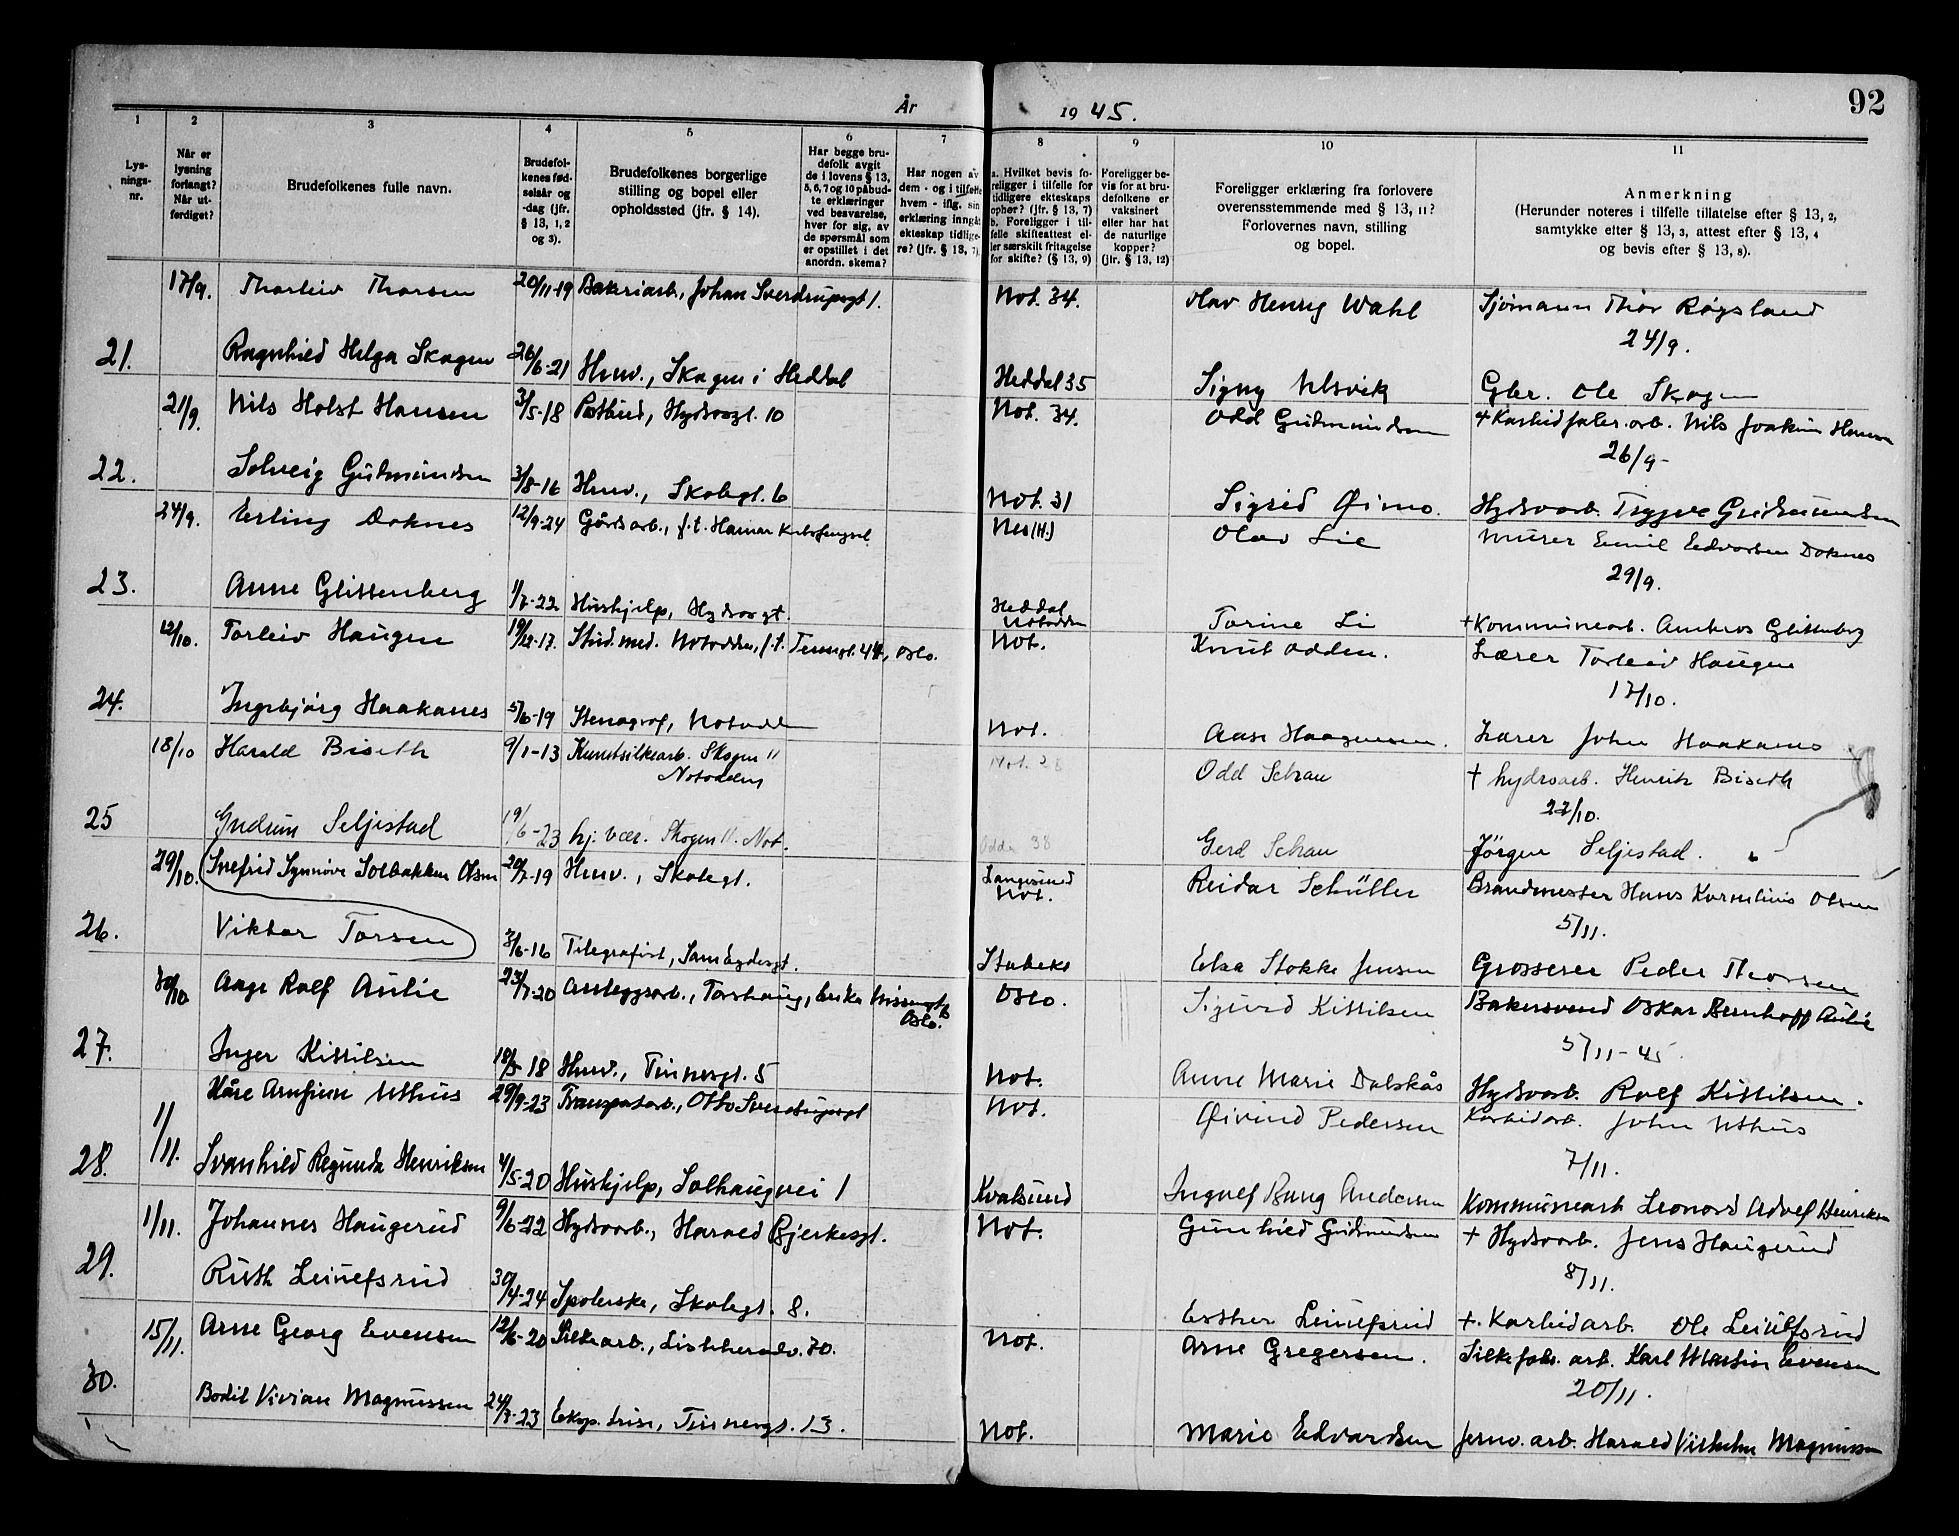 92
År 1945.
1 2 3 4 5 6 7 8 9 10 11
Lysnings-nr.
Når er lysning forlangt? Når utferdiget?
Brudefolkenes fulle navn.
Brudefolkenes fødselsår og -dag (jfr. § 13, 1, 2 og 3).
Brudefolkenes borgerlige stilling og bopel eller opholdssted (jfr. § 14).
Har begge brudefolk avgit de i lovens § 13, 5, 6, 7 og 10 påbudte erklæringer ved besvarelse, hver for sig, av de spørsmål som er opstillet i det anordn. skema?
Har nogen av dem - og i tilfelle hvem - iflg. sin erklæring inngått ekteskap tidligere? (jfr. § 13, 7).
a. Hvilket bevis foreligger i tilfelle for tidligere ekteskaps ophør? (jfr. § 13, 7) b. Foreligger i tilfelle skifteattest eller særskilt fritagelse for skifte? (§ 13, 9)
Foreligger bevis for at brudefolkene er vaksinert eller har hat de naturlige kopper? (jfr. § 13, 12)
Foreligger erklæring fra forlovere overensstemmende med § 13, 11? Forlovernes navn, stilling og bopel.
Anmerkning (Herunder noteres i tilfelle tillatelse efter § 13, 2, samtykke efter § 13, 3, attest efter § 13, 4 og bevis efter § 13, 8).
17/9. Thorleiv Thorsen 20/11-19 Bakeriarb., Johan Sverdrupsgt 1. Not. 34. Olav Henry Wahl Sjømann Thor Røgsland
24/9.
21. Ragnhild Helga Skogen 26/6-21 Husv., Skogen i Heddal Heddal 35 Signy Ulsvik Gbr. Ole Skogen
21/9. Nils Holst Hansen 3/5-18 Postbud, Hydrosgt. 10 Not. 34. Odd Gudmundsen + Karbidfabr.arb. Nils Joakim Hansen
26/9-
22. Solveig Gudmundsen 3/8-16 Husv., Skolegt. 6 Not. 31 Sigrid Øimo. Hydroarb. Trygve Gudmundsen
24/9. Erling Doknes 12/9-24 Gårdsarb., f.t. Hamar Kretsfengsel Nes (H.) Olav Lie Murer Emil Edvartsen Doknes
29/9.
23. Anne Glittenberg 1/7-22 Hushjelp, Hydrosgt. Heddal Notodden Torine Li + Kommunearb. Anders Glittenberg
12/10. Torleiv Haugen 19/12-17. Stud.med. Notodden, f.t. 44, Oslo. Not. Knut Odden. Lærer Torleiv Haugen
17/10.
24. Ingebjørg Haakanes 5/6-19 Stenograf, Notodden Not. Aase Haagensen. Lærer John Haakanes
18/10 Harald Biseth 9/1-13 Kunstsilkearb. Skogen 11 Notodden Not. 28 Odd Schau + hydroarb. Henrik Biseth
22/10.
25 Gudrun Seljestad 19/6-23 hj. vær. Skogen 11. Not. Odda 38 Gerd Schau Jörgen Seljestad.
29/10. Snefrid Synnöve Solbakken Olsen 20/7-19 Husv., Skolegt. Langesund Not. Reidar Schüller Brandmester Hans Kornelius Olsen
5/11.
26. Viktor Torsen 3/6-16 Telegrafist, Sam Eydesgt. Stabekk Elsa Stokke Jensen Grosserer Peder Thorsen
30/10 Aage Rolf Aulie 23/7-20 Anleggsarb., Torshaug, Erika Nissensgt. 6 Oslo. Oslo. Sigurd Kittilsen Bakersvend Oskar Bernhoff Aulie
5/11-45
27. Inger Kittilsen 18/3-18 Husv., Tinnesgt. 5 Not. Anne Marie Dalskås Hydroarb. Rolf Kittilsen.
1/11. Kåre Arnfinn Uthus 29/9-23 Transportarb., Otto Sverdrupsgt Not. Øivind Pedersen Karbidarb. John Uthus
7/11.
28. Svanhild Regunda Henriksen 4/5-20 Hushjelp, Solhaugvei 1 Kvalsund Ingulf Bang Andersen Kommunearb Leonard Adolf Henriksen
1/11. Johannes Haugerud 9/6-22 Hydroarb., Harald Bjerkesgt. Not. Gunhild Gudmundsen + Hydroarb. Jens Haugerud
8/11.
29. Ruth Leinelfsrud 30/4-24 Spolerske, Skolegt. 8. Esther Leinelfsrud +. Karbidarb. Ole Leinelfsrud
15/11. Arne Georg Evensen 12/6-20 Silkearb., 70. Not. Arne Gregersen. Silkefabr. arb. Karl Martin Evensen
20/11.
30. Bodil Vivian Magnussen 24/3-23 Eksp. trise, Tinnesgt. 13. Not. Marie Edvardsen Jernv. arb. Harald Vilhelm Magnussen